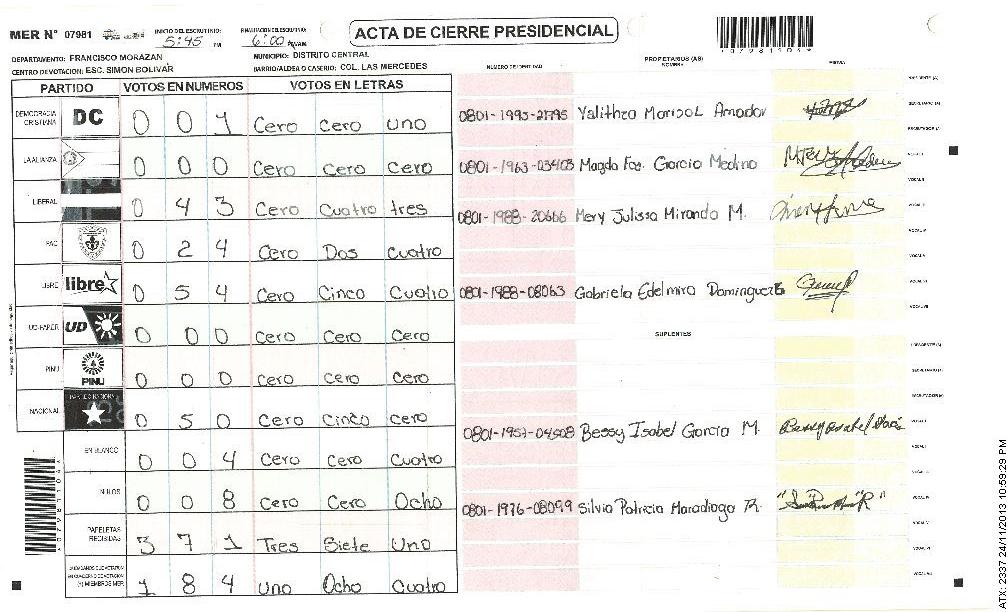 MER N° 07981
INICIO DEL ESCRUTINIO:
5:45 PM
FINALIZACION DEL ESCRUTINIO:
6:00 PM/AM
ACTA DE CIERRE PRESIDENCIAL
DEPARTAMENTO: FRANCISCO MORAZAN
MUNICIPIO: DISTRITO CENTRAL
CENTRO DE VOTACION: ESC. SIMON BOLIVAR
BARRIO/ALDEA O CASERIO: COL. LAS MERCEDES
PARTIDO VOTOS EN NUMEROS VOTOS EN LETRAS
DEMOCRACIA CRISTIANA DC 0 0 1 Cero Cero Uno
LA ALIANZA 0 0 0 Cero Cero Cero
LIBERAL 0 4 3 Cero Cuatro tres
PAC 0 2 4 Cero Dos Cuatro
LIBRE libre 0 5 4 Cero Cinco Cuatro
UD-FAPER UD 0 0 0 Cero Cero Cero
PINU PINU 0 0 0 Cero Cero Cero
NACIONAL 0 5 0 Cero Cinco Cero
EN BLANCO 0 0 4 Cero Cero Cuatro
NULOS 0 0 8 Cero Cero Ocho
PAPELETAS RECIBIDAS 3 7 1 Tres Siete Uno
1 8 4 Uno Ocho Cuatro
NUMERO DE IDENTIDAD
PROPIETARIOS (AS)
NOMBRE
FIRMA
0801-1993-21795 Yalithza Marisol Amador
0801-1963-03403 Magda Fca. Garcia Medina
0801-1988-20666 Mery Julissa Miranda M.
0801-1988-08063 Gabriela Edelmira Dominguez
SUPLENTES
0801-1957-04508 Bessy Isabel Garcia M.
0801-1976-08099 Silvia Patricia Maradiaga R.
ATX: 2337 24/11/2013 10:59:29 PM